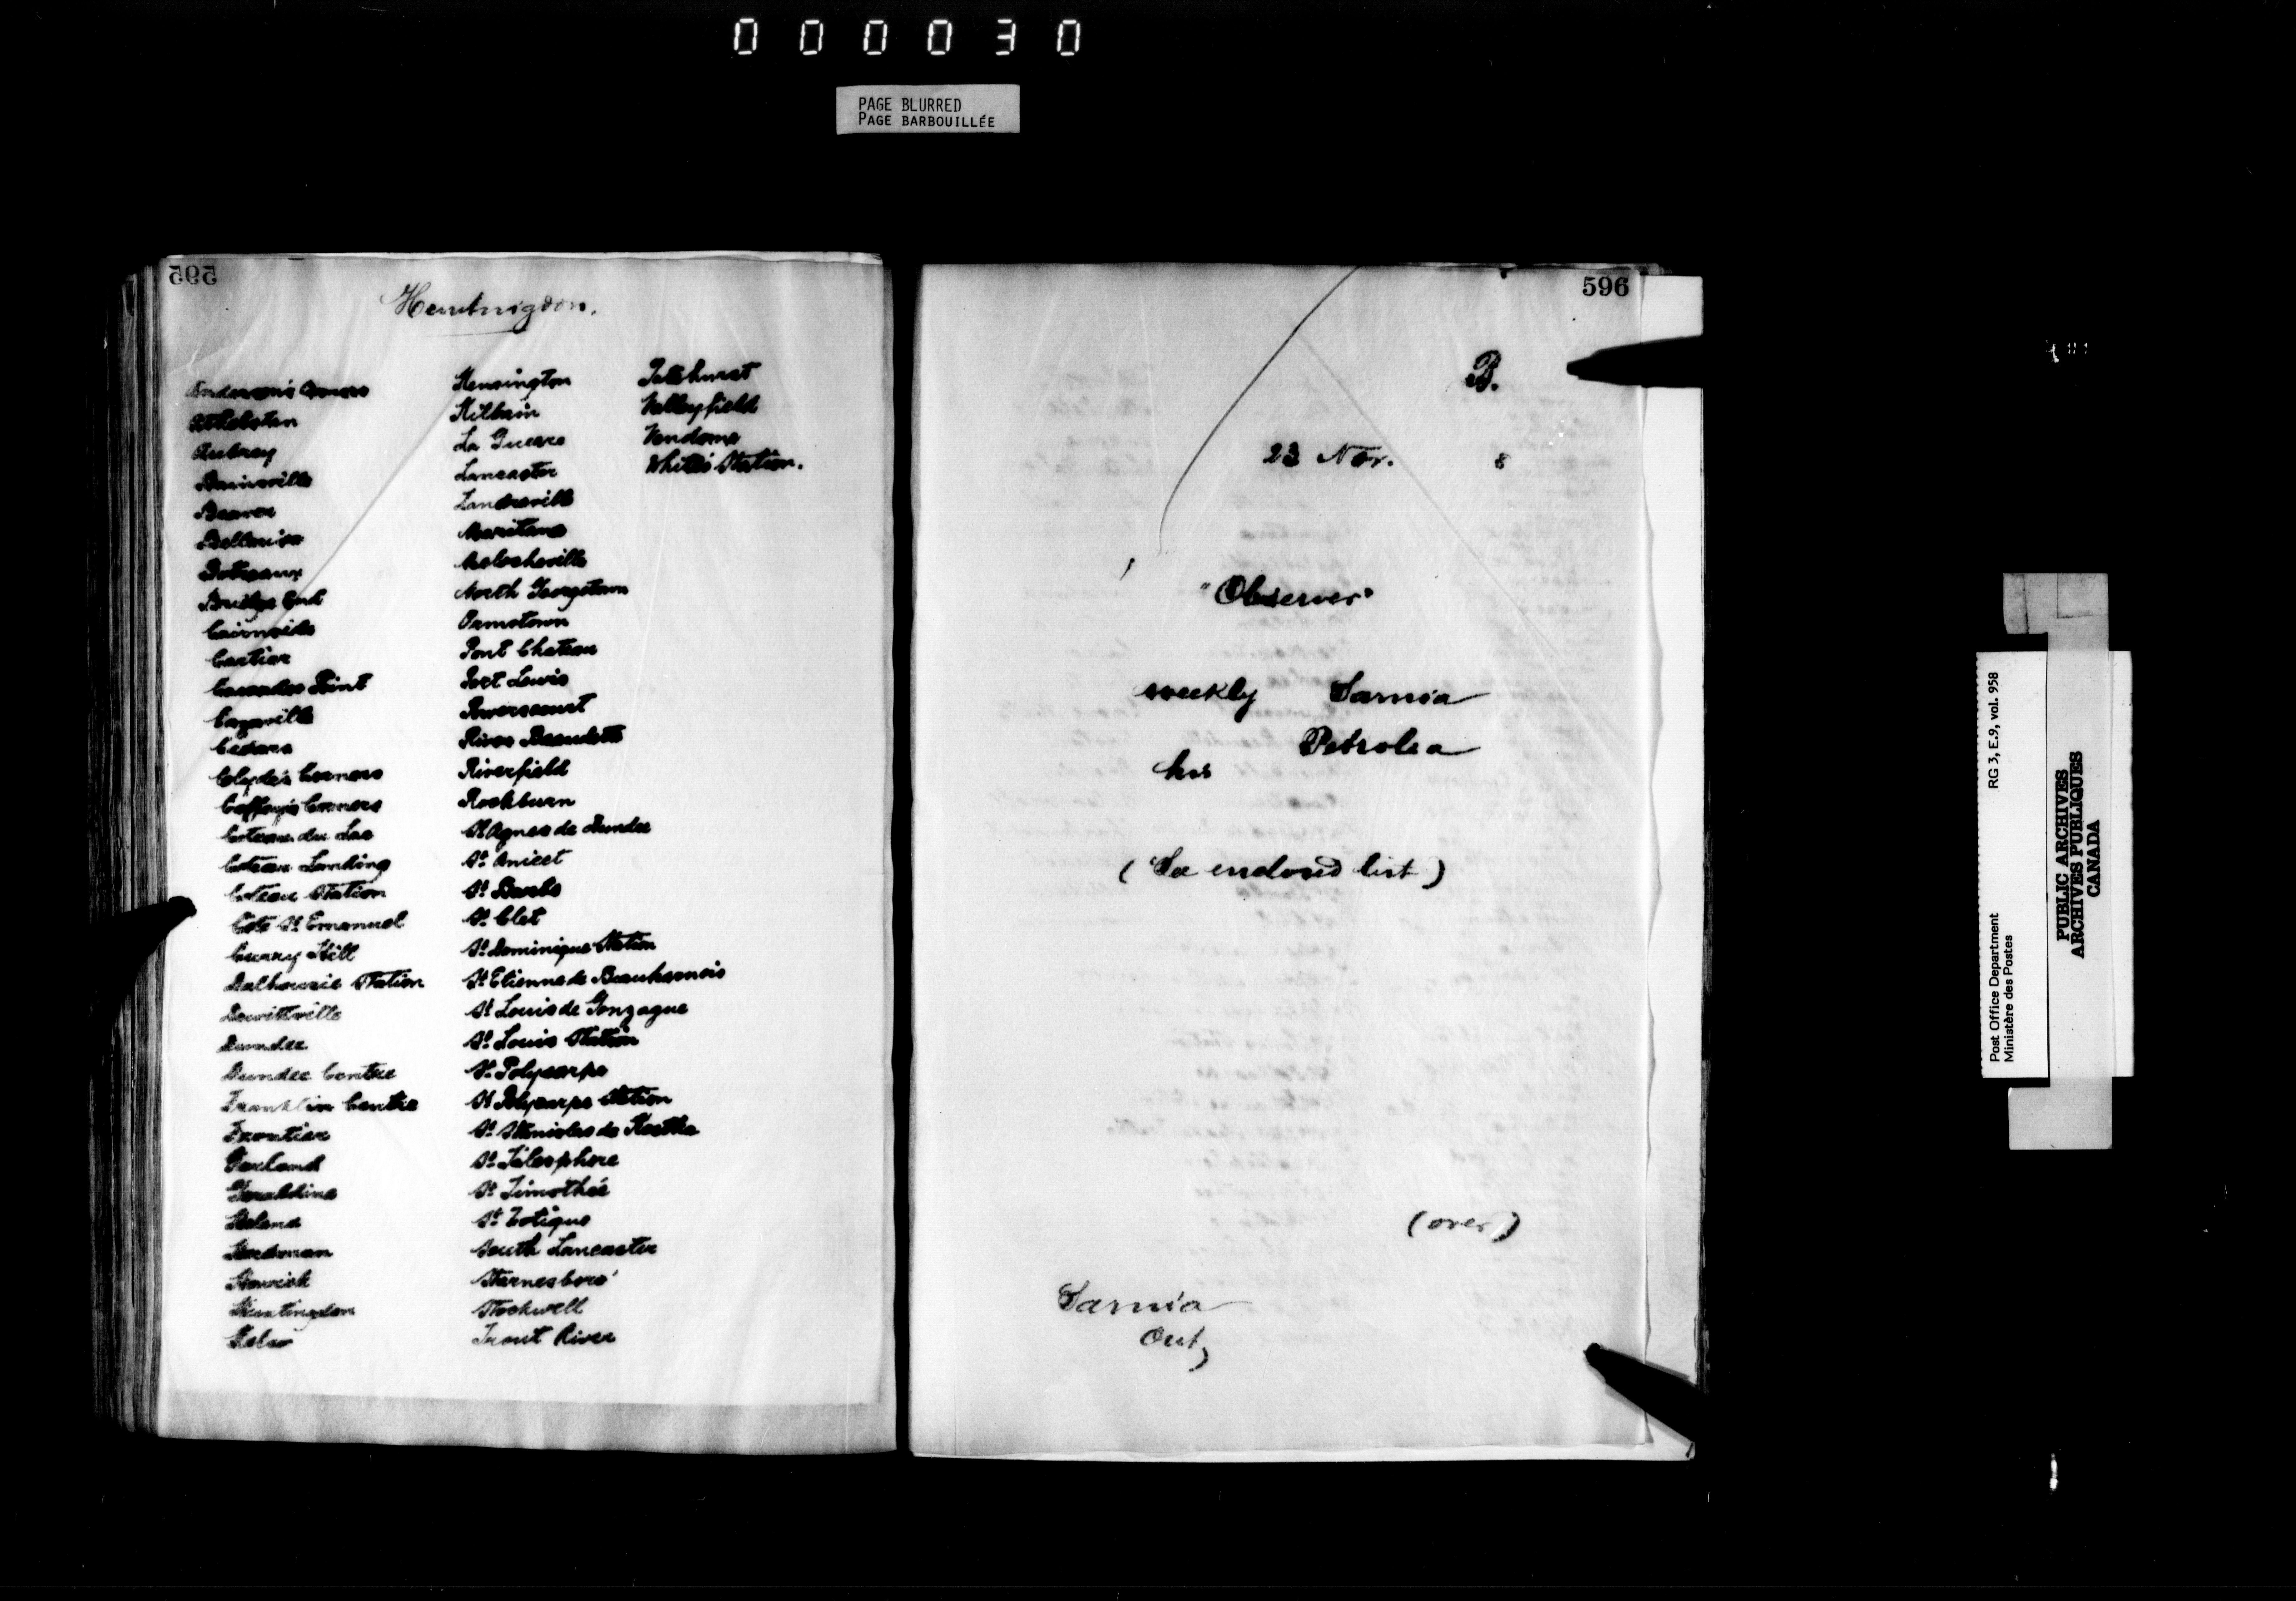 000030
PAGE BLURRED
PAGE BARBOUILLÉE
595
Huntingdon.
Anderson's Corners
Athelstan
Aubrey
Bainsville
Beaver
Bellerive
Boteaux
Bridge End
Cairnside
Cartier
Cascades Point
Cazaville
Cedars
Clyde's Corners
Coffey's Corners
Coteau du Lac
Coteau Landing
Coteau Station
Cote St Emanuel
Curry Hill
Dalhousie Station
Dewittville
Dundee
Dundee Centre
Franklin Centre
Frontier
Garland
Geraldine
Helena
Herdman
Howick
Huntingdon
Kelso
Kensington
Kilbain
La Guerre
Lancaster
Landreville
Maritana
Melocheville
North Georgetown
Ormstown
Pont Chateau
Port Lewis
Powerscourt
River Beaudette
Riverfield
Rockburn
St Agnes de Dundee
St Anicet
St Barbe
St Clet
St Dominique Station
St Etienne de Beauharnois
St Louis de Gonzague
St Louis Station
St Polycarpe
St Polycarpe Station
St Stanislas de Kostka
St Télesphore
St Timothée
St Zotique
South Lancaster
Starnesboro'
Stockwell
Trout River
Tatehurst
Valleyfield
Vendome
White's Station.
596
B.
23 Nov. 8
"Observer"
weekly Sarnia
Petrolea
his
(See enclosed list)
(over)
Sarnia
Ont,
Post Office Department
Ministère des Postes
RG 3, E.9, vol. 958
PUBLIC ARCHIVES
ARCHIVES PUBLIQUES
CANADA